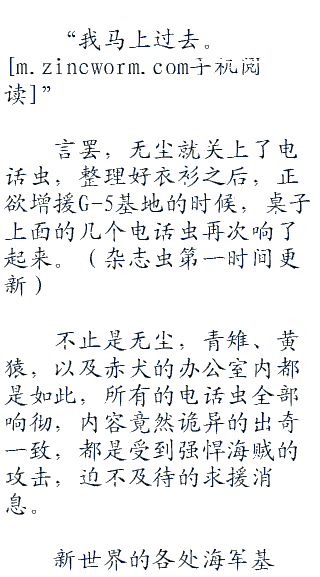 “我马上过去。
[m.zincworm.com手机阅
读]”
言罢，无尘就关上了电
话虫，整理好衣衫之后，正
欲增援G-5基地的时候，桌子
上面的几个电话虫再次响了
起来。（杂志虫第一时间更
新）
不止是无尘，青雉、黄
猿，以及赤犬的办公室内都
是如此，所有的电话虫全部
响彻，内容竟然诡异的出奇
一致，都是受到强悍海贼的
攻击，迫不及待的求援消
息。
新世界的各处海军基